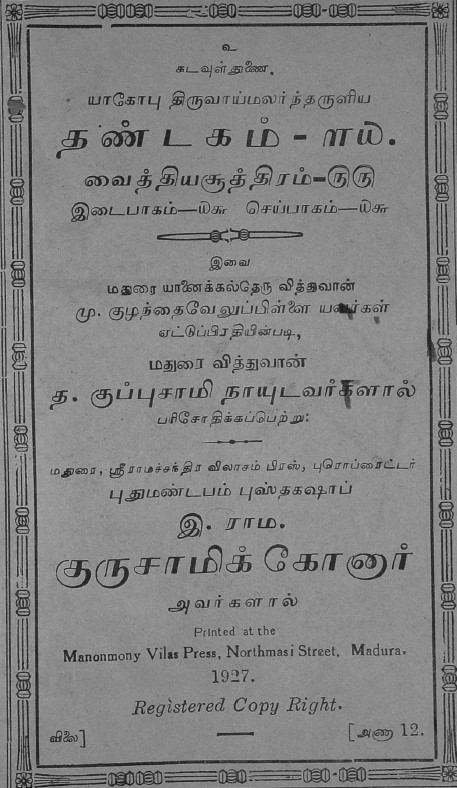 உ
கடவுள் துணை.
யாகோபு திருவாய்மலர்ந்தருளிய
தண்டகம்-௱௰.
வைத்தியசூத்திரம்-௫௫
இடைபாகம்—௰௬ செய்பாகம்—௰௬
இவை
மதுரை யானைக்கல்தெரு வித்துவான்
மு. குழந்தைவேலுப்பிள்ளை யவர்கள்
ஏட்டுப்பிரதியின்படி,
மதுரை வித்துவான்
த. குப்புசாமி நாயுடவர்களால்
பரிசோதிக்கப்பெற்று:
மதுரை, ஸ்ரீராமச்சந்திர விலாசம் பிரஸ், புரொப்ரைட்டர்
புதுமண்டபம் புஸ்தகஷாப்
இ. ராம.
குருசாமிக் கோனார்
அவர்களால்
Printed at the
Manonmony Vilas Press, Northmasi Street, Madura.
1927.
Registered Copy Right.
விலை] [அணா 12.